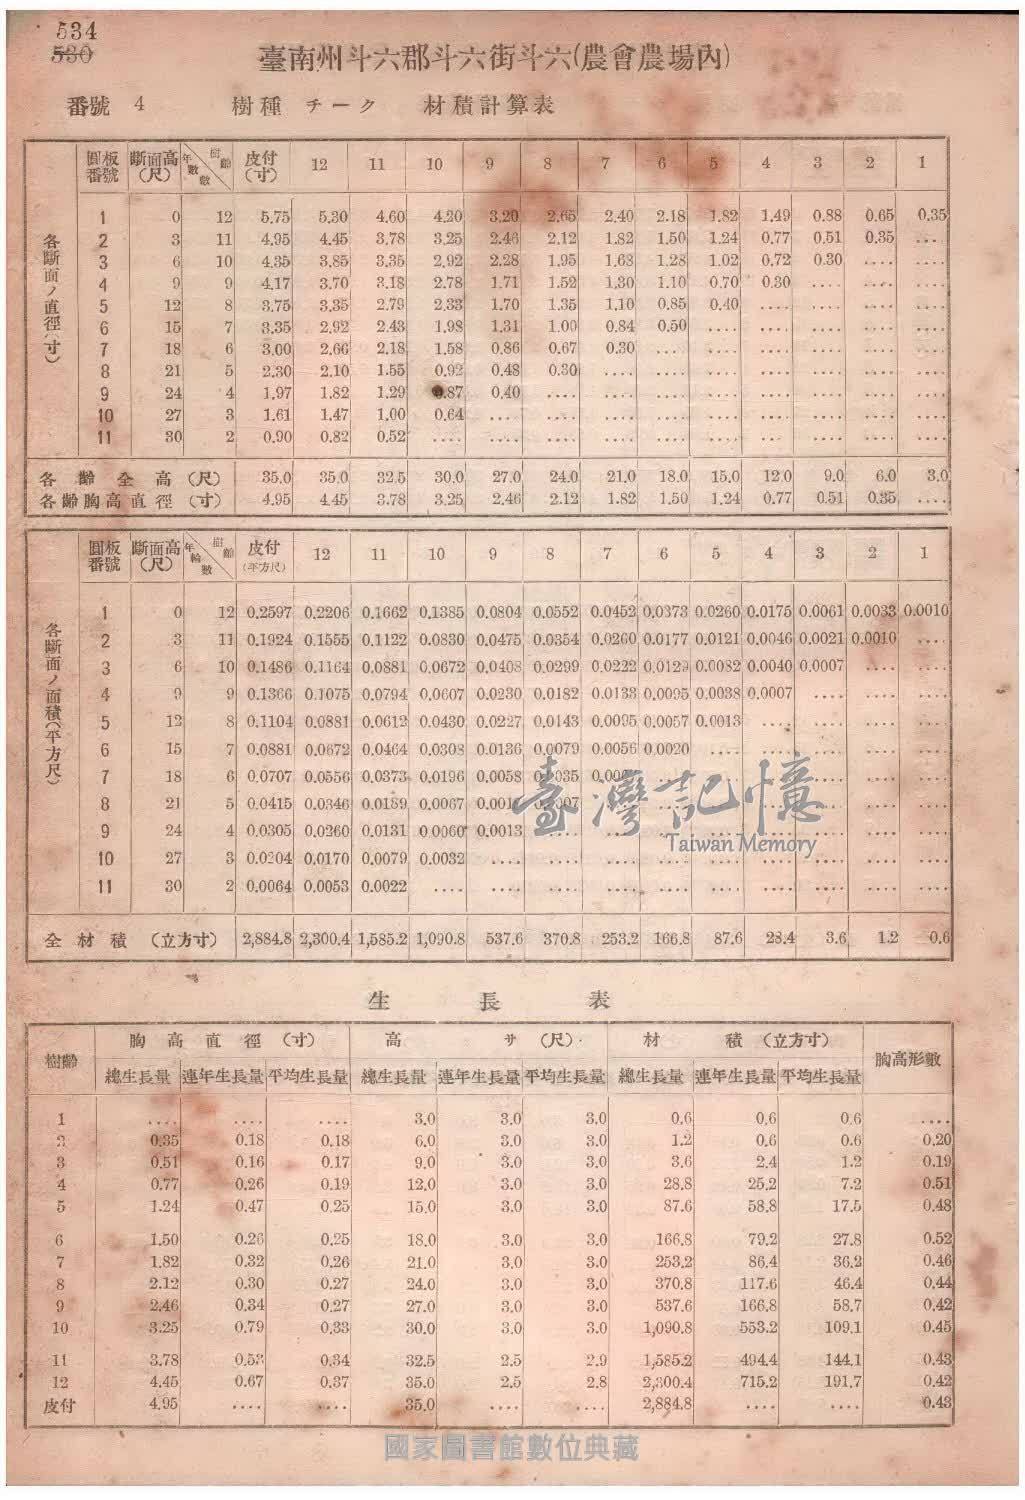 534
530
臺南州斗六郡斗六街斗六(農會農場內)
番號 4 樹種 チーク 材積計算表
圓板番號 斷面高(尺) 年數 樹齡 皮付(寸) 12 11 10 9 8 7 6 5 4 3 2 1
各斷面ノ直徑(寸)
1 0 12 5.75 5.30 4.60 4.20 3.20 2.65 2.40 2.18 1.82 1.49 0.88 0.65 0.35
2 3 11 4.95 4.45 3.78 3.25 2.46 2.12 1.82 1.50 1.24 0.77 0.51 0.35 ....
3 6 10 4.35 3.85 3.35 2.92 2.28 1.95 1.68 1.28 1.02 0.72 0.30 .... ....
4 9 9 4.17 3.70 3.18 2.78 1.71 1.52 1.30 1.10 0.70 0.30 .... .... ....
5 12 8 3.75 3.35 2.79 2.33 1.70 1.35 1.10 0.85 0.40 .... .... .... ....
6 15 7 3.35 2.92 2.43 1.98 1.31 1.00 0.84 0.50 .... .... .... .... ....
7 18 6 3.00 2.66 2.18 1.58 0.86 0.67 0.30 .... .... .... .... .... ....
8 21 5 2.30 2.10 1.55 0.92 0.48 0.30 .... .... .... .... .... .... ....
9 24 4 1.97 1.82 1.29 0.87 0.40 .... .... .... .... .... .... .... ....
10 27 3 1.61 1.47 1.00 0.64 .... .... .... .... .... .... .... .... ....
11 30 2 0.90 0.82 0.52 .... .... .... .... .... .... .... .... .... ....
各齡全高(尺) 35.0 35.0 32.5 30.0 27.0 24.0 21.0 18.0 15.0 12.0 9.0 6.0 3.0
各齡胸高直徑(寸) 4.95 4.45 3.78 3.25 2.46 2.12 1.82 1.50 1.24 0.77 0.51 0.35 ....
圓板番號 斷面高(尺) 年輪數 樹齡 皮付(平方尺) 12 11 10 9 8 7 6 5 4 3 2 1
各斷面ノ面積(平方尺)
1 0 12 0.2597 0.2206 0.1662 0.1385 0.0804 0.0552 0.0452 0.0373 0.0260 0.0175 0.0061 0.0033 0.0010
2 3 11 0.1924 0.1555 0.1122 0.0830 0.0475 0.0354 0.0260 0.0177 0.0121 0.0046 0.0021 0.0010 ....
3 6 10 0.1486 0.1164 0.0881 0.0672 0.0408 0.0299 0.0222 0.0129 0.0082 0.0040 0.0007 .... ....
4 9 9 0.1366 0.1075 0.0794 0.0607 0.0230 0.0182 0.0133 0.0095 0.0038 0.0007 .... .... ....
5 12 8 0.1104 0.0881 0.0612 0.0430 0.0227 0.0143 0.0095 0.0057 0.0013 .... .... .... ....
6 15 7 0.0881 0.0672 0.0464 0.0308 0.0136 0.0079 0.0056 0.0020 .... .... .... .... ....
7 18 6 0.0707 0.0556 0.0373 0.0196 0.0058 .... .... .... .... .... ....
8 21 5 0.0415 0.0346 0.0189 0.0067 .... .... .... .... .... .... ....
9 24 4 0.0305 0.0260 0.0131 0.0060 0.0013 .... .... .... .... .... .... .... ....
10 27 3 0.0204 0.0170 0.0079 0.0032 .... .... .... .... .... .... .... .... ....
11 30 2 0.0064 0.0053 0.0022 .... .... .... .... .... .... .... .... .... ....
全材積(立方寸) 2,884.8 2,300.4 1,585.2 1,090.8 537.6 370.8 253.2 166.8 87.6 28.4 3.6 1.2 0.6
臺灣記憶
Taiwan Memory
生長表
樹齡 胸高直徑(寸) 高サ(尺) 材積(立方寸) 胸高形數
總生長量 連年生長量 平均生長量 總生長量 連年生長量 平均生長量 總生長量 連年生長量 平均生長量
1 .... .... .... 3.0 3.0 3.0 0.6 0.6 0.6 ....
2 0.35 0.18 0.18 6.0 3.0 3.0 1.2 0.6 0.6 0.20
3 0.51 0.16 0.17 9.0 3.0 3.0 3.6 2.4 1.2 0.19
4 0.77 0.26 0.19 12.0 3.0 3.0 28.8 25.2 7.2 0.51
5 1.24 0.47 0.25 15.0 3.0 3.0 87.6 58.8 17.5 0.48
6 1.50 0.26 0.25 18.0 3.0 3.0 166.8 79.2 27.8 0.52
7 1.82 0.32 0.26 21.0 3.0 3.0 253.2 86.4 36.2 0.46
8 2.12 0.30 0.27 24.0 3.0 3.0 370.8 117.6 46.4 0.44
9 2.46 0.34 0.27 27.0 3.0 3.0 537.6 166.8 58.7 0.42
10 3.25 0.79 0.33 30.0 3.0 3.0 1,090.8 553.2 109.1 0.45
11 3.78 0.53 0.34 32.5 2.5 2.9 1,585.2 494.4 144.1 0.43
12 4.45 0.67 0.37 35.0 2.5 2.8 2,300.4 715.2 191.7 0.42
皮付 4.95 .... .... 35.0 .... .... 2,884.8 .... .... 0.43
國家圖書館數位典藏